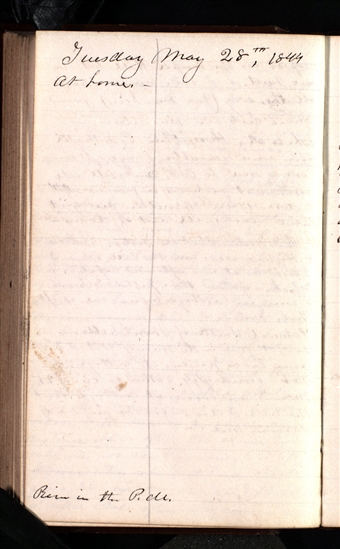 Tuesday May 28,TH 1844
At home —
in the P.M.